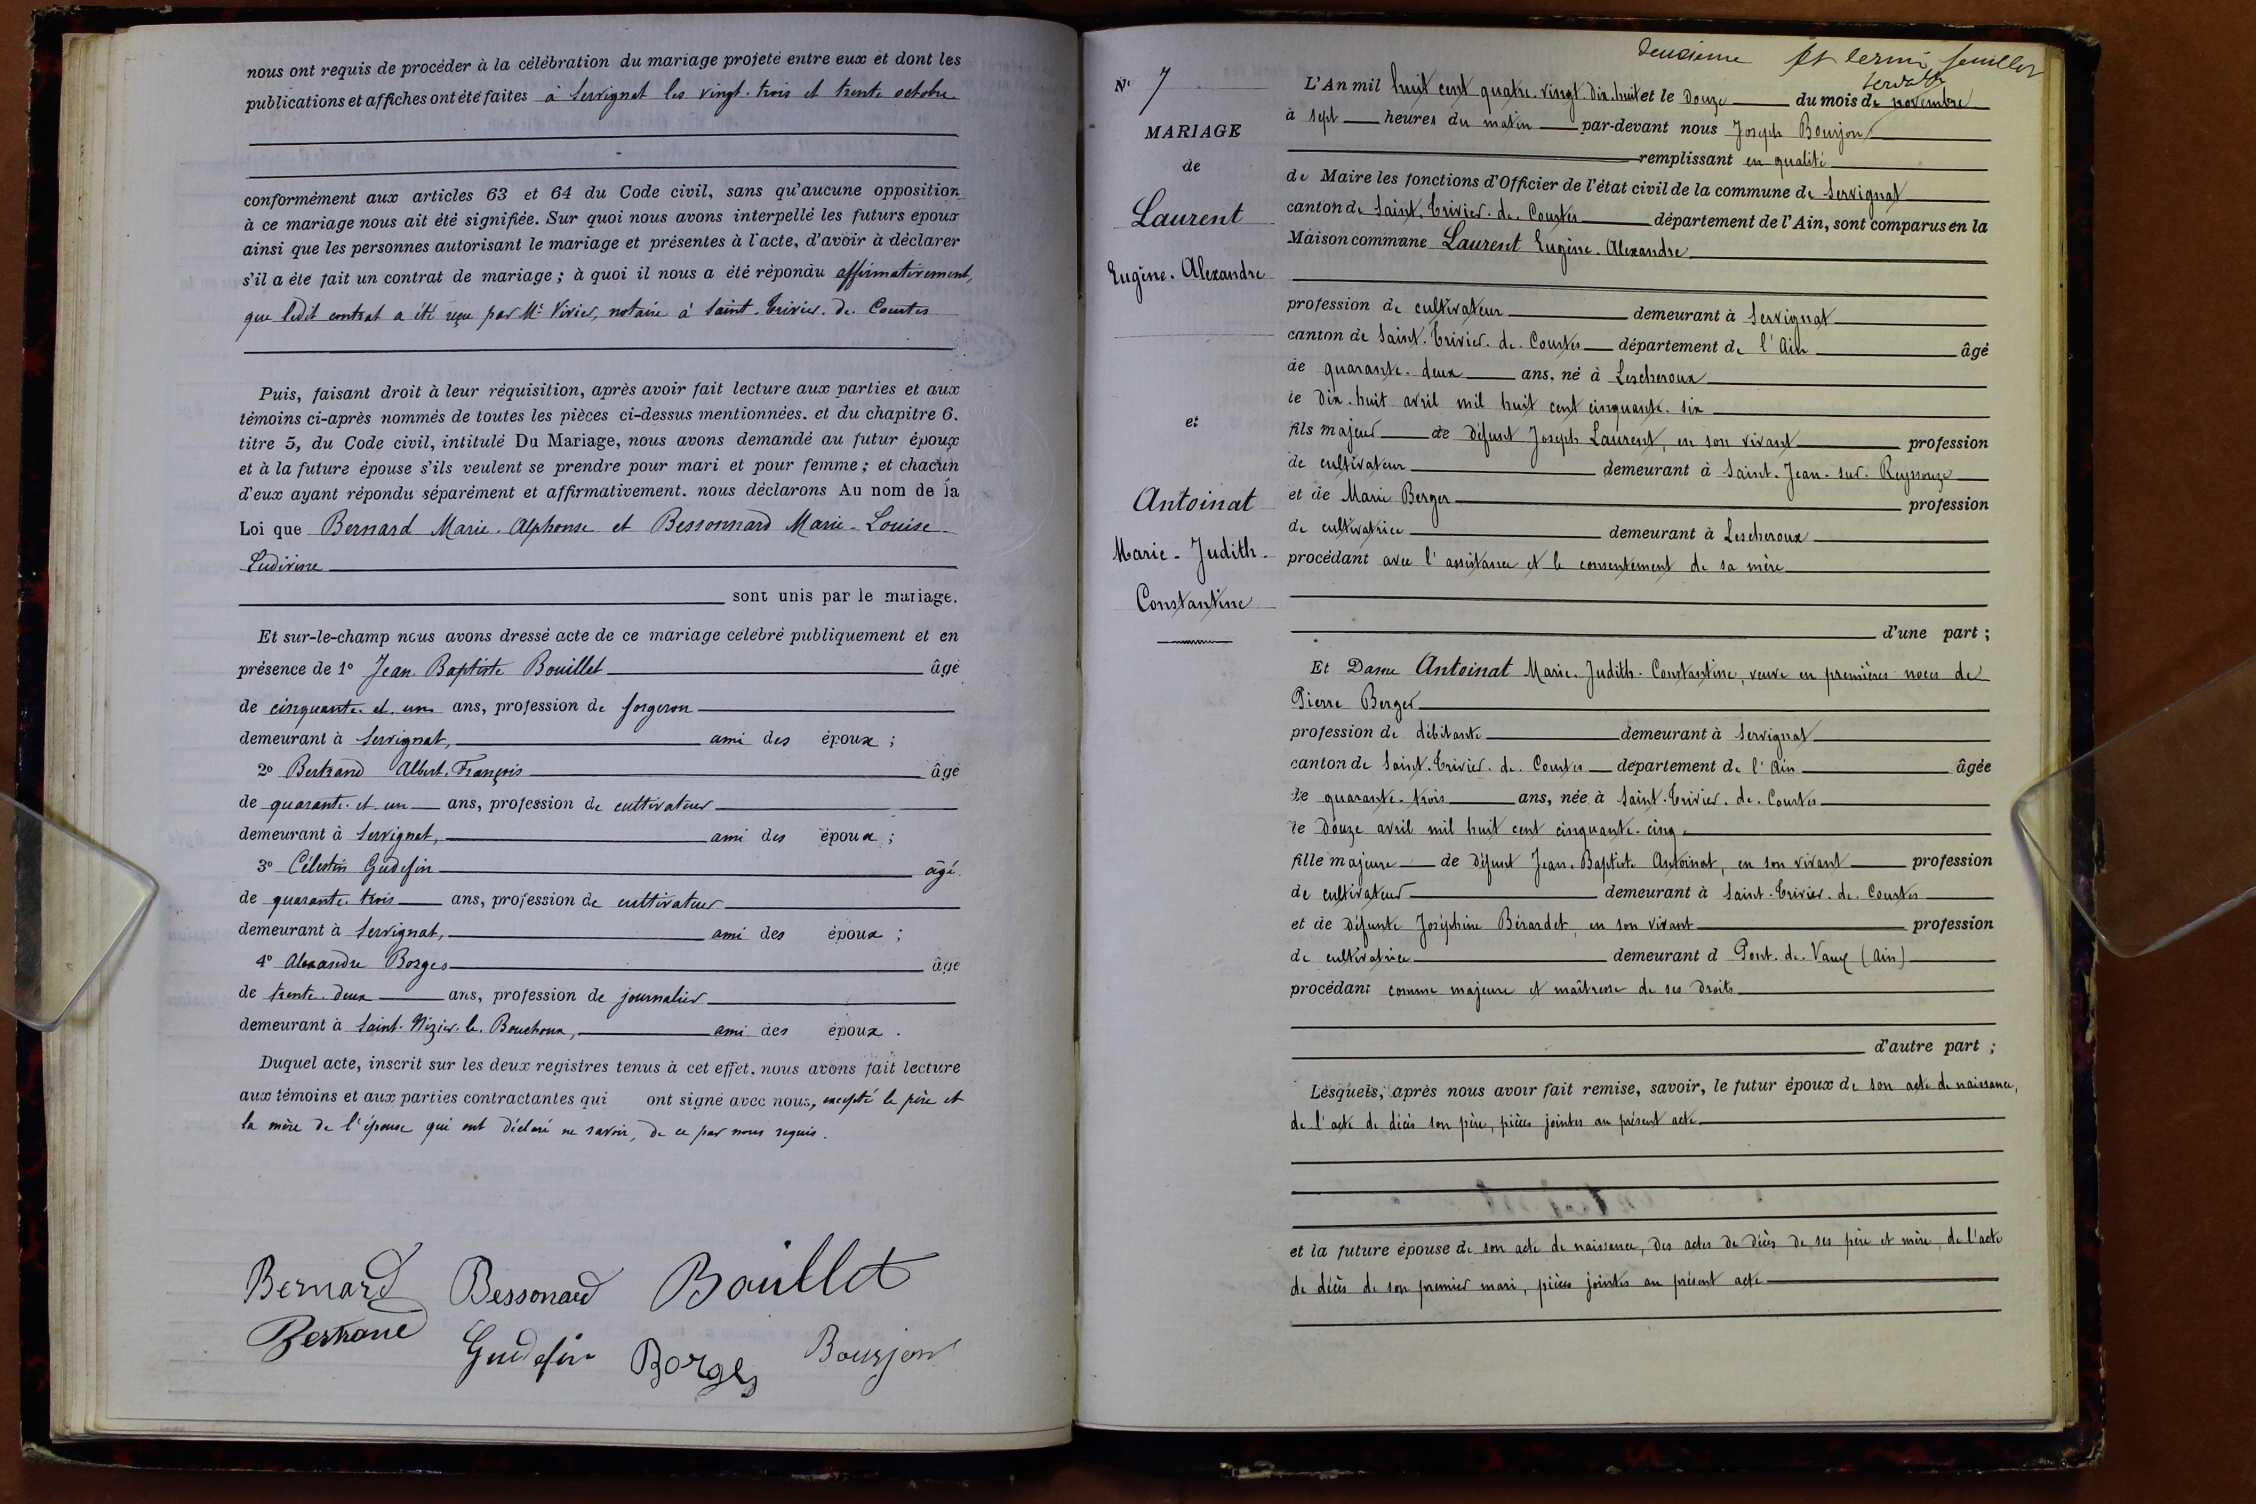 nous ont requis de procéder à la célébration du mariage projeté entre eux et dont les
publications et affiches ont été faites à Servignat les vingt-trois et trente octobre
conformément aux articles 63 et 64 du Code civil, sans qu'aucune opposition
à ce mariage nous ait été signifiée. Sur quoi nous avons interpellé les futurs époux
ainsi que les personnes autorisant le mariage et présentes à l'acte, d'avoir à déclarer
s'il a été fait un contrat de mariage ; à quoi il nous a été répondu affirmativement,
que ledit contrat a été reçu par Me Vivier, notaire à Saint-Trivier-de-Courtes
Puis, faisant droit à leur réquisition, après avoir fait lecture aux parties et aux
témoins ci-après nommés de toutes les pièces ci-dessus mentionnées. et du chapitre 6.
titre 5, du Code civil, intitulé Du Mariage, nous avons demandé au futur époux
et à la future épouse s'ils veulent se prendre pour mari et pour femme ; et chacun
d'eux ayant répondu séparément et affirmativement. nous déclarons Au nom de la
Loi que Bernard Marie-Alphonse et Bessonnard Marie-Louise
Ludivine
sont unis par le mariage.
Et sur-le-champ nous avons dressé acte de ce mariage célébré publiquement et en
présence de 1° Jean-Baptiste Bouillet âgé
de cinquante-et-un ans, profession de forgeron
demeurant à Servignat, ami des époux ;
2° Bertrand Albert-François âgé
de quarante-et-un ans, profession de cultivateur
demeurant à Servignat, ami des époux ;
3° Célestin Gudefin âgé
de quarante-trois ans, profession de cultivateur
demeurant à Servignat, ami des époux ;
4° Alexandre Borges âgé
de trente-deux ans, profession de journalier
demeurant à Saint-Nizier-le-Bouchoux, ami des époux.
Duquel acte, inscrit sur les deux registres tenus à cet effet. nous avons fait lecture
aux témoins et aux parties contractantes qui ont signé avec nous, excepté le père et
la mère de l'épouse qui ont déclaré ne savoir, de ce par nous requis.
Bernard Bessonard Bouillet
Bertrand Gudefin Borges Bourjon
deuxième et dernier feuillet
N° 7
MARIAGE
de
Laurent
Eugène-Alexandre
et
Antoinat
Marie-Judith-
Constantine
L'An mil huit cent quatre-vingt-dix-huit et le douze du mois de novembre
à sept heures du matin par-devant nous Joseph Bourjon
remplissant en qualité
de Maire les fonctions d'Officier de l'état civil de la commune de Servignat
canton de Saint-Trivier-de-Courtes département de l'Ain, sont comparus en la
Maison commune Laurent Eugène-Alexandre
profession de cultivateur demeurant à Servignat
canton de Saint-Trivier-de-Courtes département de l'Ain âgé
de quarante-deux ans, né à Lescheroux
le dix-huit avril mil huit cent cinquante-six
fils majeur de défunt Joseph Laurent, en son vivant profession
de cultivateur demeurant à Saint-Jean-sur-Reyssouze
et de Marie Berger profession
de cultivatrice demeurant à Lescheroux
procédant avec l'assistance et le consentement de sa mère
d'une part ;
Et Dame Antoinat Marie-Judith-Constantine, veuve en premières noces de
Pierre Berger
profession de débitante demeurant à Servignat
canton de Saint-Trivier-de-Courtes département de l'Ain âgée
de quarante-trois ans, née à Saint-Trivier-de-Courtes
le douze avril mil huit cent cinquante-cinq
fille majeure de défunt Jean-Baptiste Antoinat, en son vivant profession
de cultivateur demeurant à Saint-Trivier-de-Courtes
et de défunte Joséphine Bérardet, en son vivant profession
de cultivatrice demeurant à Pont-de-Vaux (Ain)
procédant comme majeure et maîtresse de ses droits
d'autre part ;
Lesquels, après nous avoir fait remise, savoir, le futur époux de son acte de naissance,
de l'acte de décès son père, pièces jointes au présent acte
et la future épouse de son acte de naissance, des actes de décès de ses père et mère, de l'acte
de décès de son premier mari, pièces jointes au présent acte